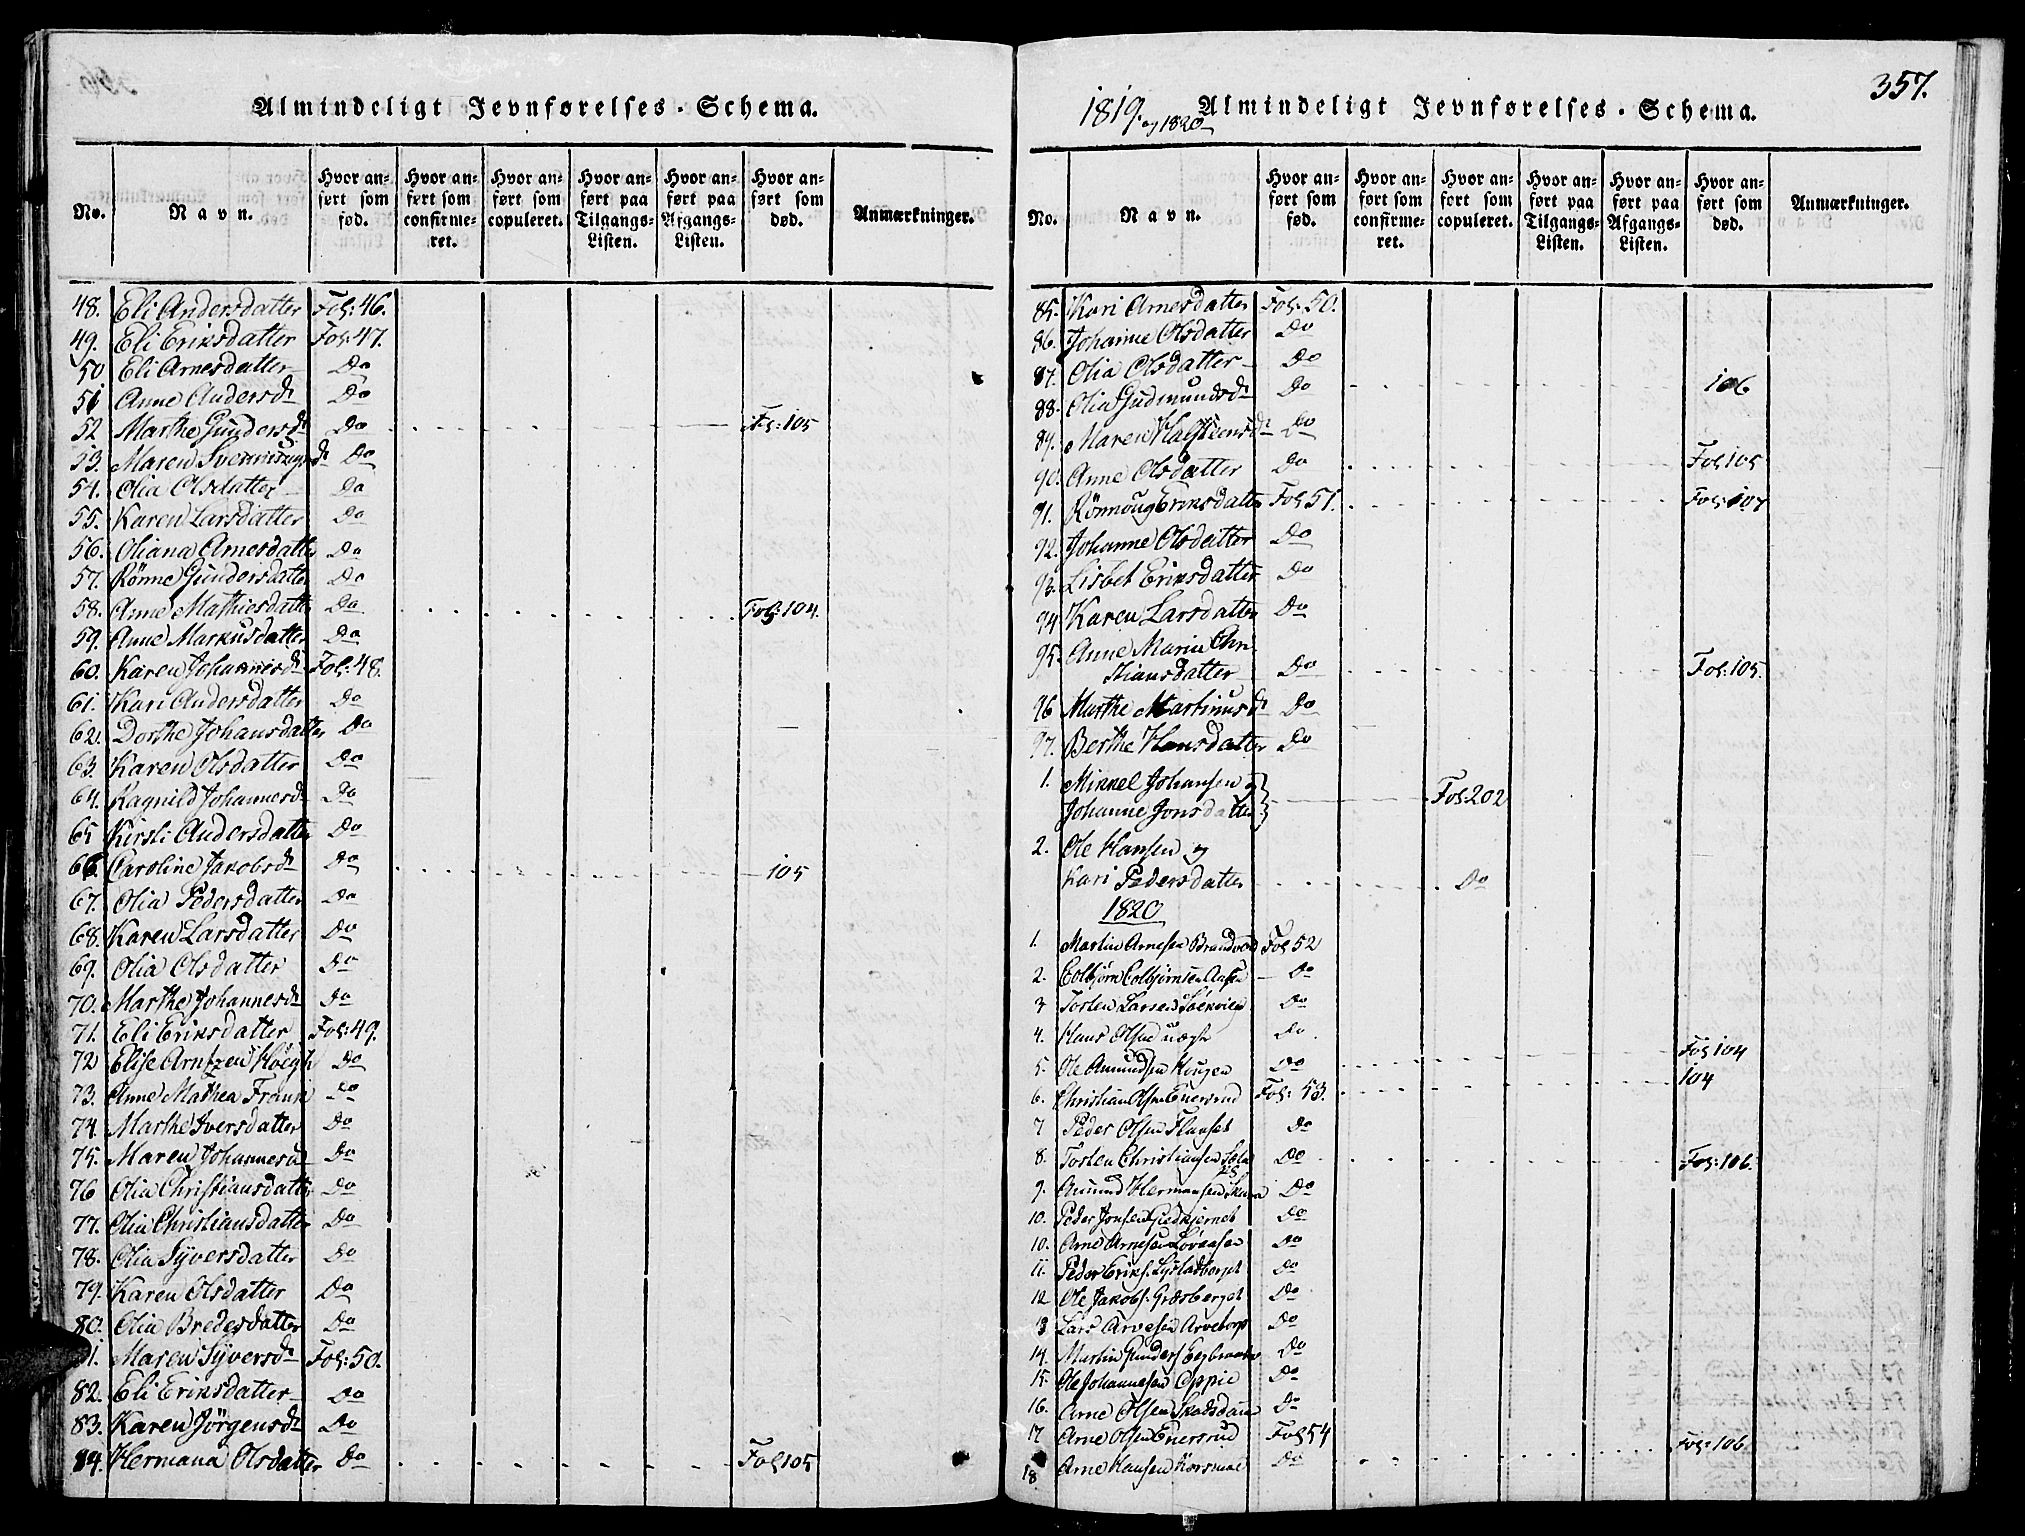 Almindeligt Jevnførelses-Schema.
No. Navn. Hvor anført som fød. Hvor anført som confirmeret. Hvor anført som copuleret. Hvor anført paa Tilgangs-Listen. Hvor anført paa Afgangs-Listen. Hvor anført som død. Anmærkninger.
48. Eli Andersdatter Fol: 46.
49. Eli Eriksdatter Fol: 47.
50 Eli Arnesdatter Do
51 Anne Andersd Do
52 Marthe Gundersd Do Fol: 105
53. Maren Do
54. Olia Olsdatter Do
55. Karen Larsdatter Do
56. Oliana Arnesdatter Do
57. Rönne Gundersdatter Do
58. Anne Mathiesdatter Do Fol: 104.
59. Anne Markusdatter Do
60. Karen Johannesd Fol: 48.
61. Kari Andersdatter Do
62. Dorthe Johansdatter Do
63. Karen Olsdatter Do
64. Ragnild Johannesd Do
65 Kirsti Andersdatter Do
66 Caroline Jakobsd Do 105
67. Olia Pedersdatter Do
68. Karen Larsdatter Do
69. Olia Olsdatter Do
70. Marthe Johannesd Do
71. Eli Eriksdatter Fol: 49.
72 Elise Arntzen Høegh Do
73. Anne Mathea Frank Do
74. Marthe Iversdatter Do
75. Maren Johannesd Do
76 Olia Christiansdatter Do
77. Olia Christiansdatter Do
78. Olia Syversdatter Do
79. Karen Olsdatter Do
80. Olia Bredesdatter Do
81. Maren Syversd Fol: 50.
82. Eli Eriksdatter Do
83. Karen Jörgensd Do
84. Hermana Olsdatter Do Fol 105
357.
1819. og 1820
Almindeligt Jevnførelses-Schema.
No. Navn. Hvor anført som fød. Hvor anført som confirmeret. Hvor anført som copuleret. Hvor anført paa Tilgangs-Listen. Hvor anført paa Afgangs-Listen. Hvor anført som død. Anmærkninger.
85. Kari Arnesdatter Fol: 50.
86. Johanne Olsdatter Do
87. Olia Olsdatter Do
88. Olia Gudmundsd Do 106
89. Maren Halsteensd Do
90. Anne Olsdatter Do Fol 105
91. Rönnoug Eriksdatter Fol 51. Fol: 107
92. Johanne Olsdatter Do
93. Lisbet Eriksdatter Do
94 Karen Larsdatter Do
95. Anne Maria Chri
stiansdatter Do Fol: 105.
96 Marthe Martinusd Do
97. Berthe Hansdatter Do
1. Mikkel Johansen og
Johanne Jonsdatter Fol: 202
2. Ole Hansen og
Kari Pedersdatter Do
1820
1. Martin Arnesen Brandvold Fol 52
2. Colbjørn Colbjørnsen Do
3 Torsten Larsen Do
4. Hans Olsen Do
5. Ole Amundsen Haugen Do Fol 104
6. Christian Olsen Enersrud Fol: 53. 104
7 Peder Olsen Do
8. Torsten Christiansen Do Fol: 106.
9. Amund Hermansen Do
10. Peder Jonsen Do
10. Arne Arnesen Do
11. Peder Eriks. Do
12 Ole Jakobs. Græsberget Do
13 Lars Arvesen Arvetorp Do
14. Martin Gunders Do
15. Ole Johannesen Oppie Do
16. Arne Olsen Do
17 Arne Olsen Enersrud Fol 54 Fol: 106
18. Arne Hansen Do